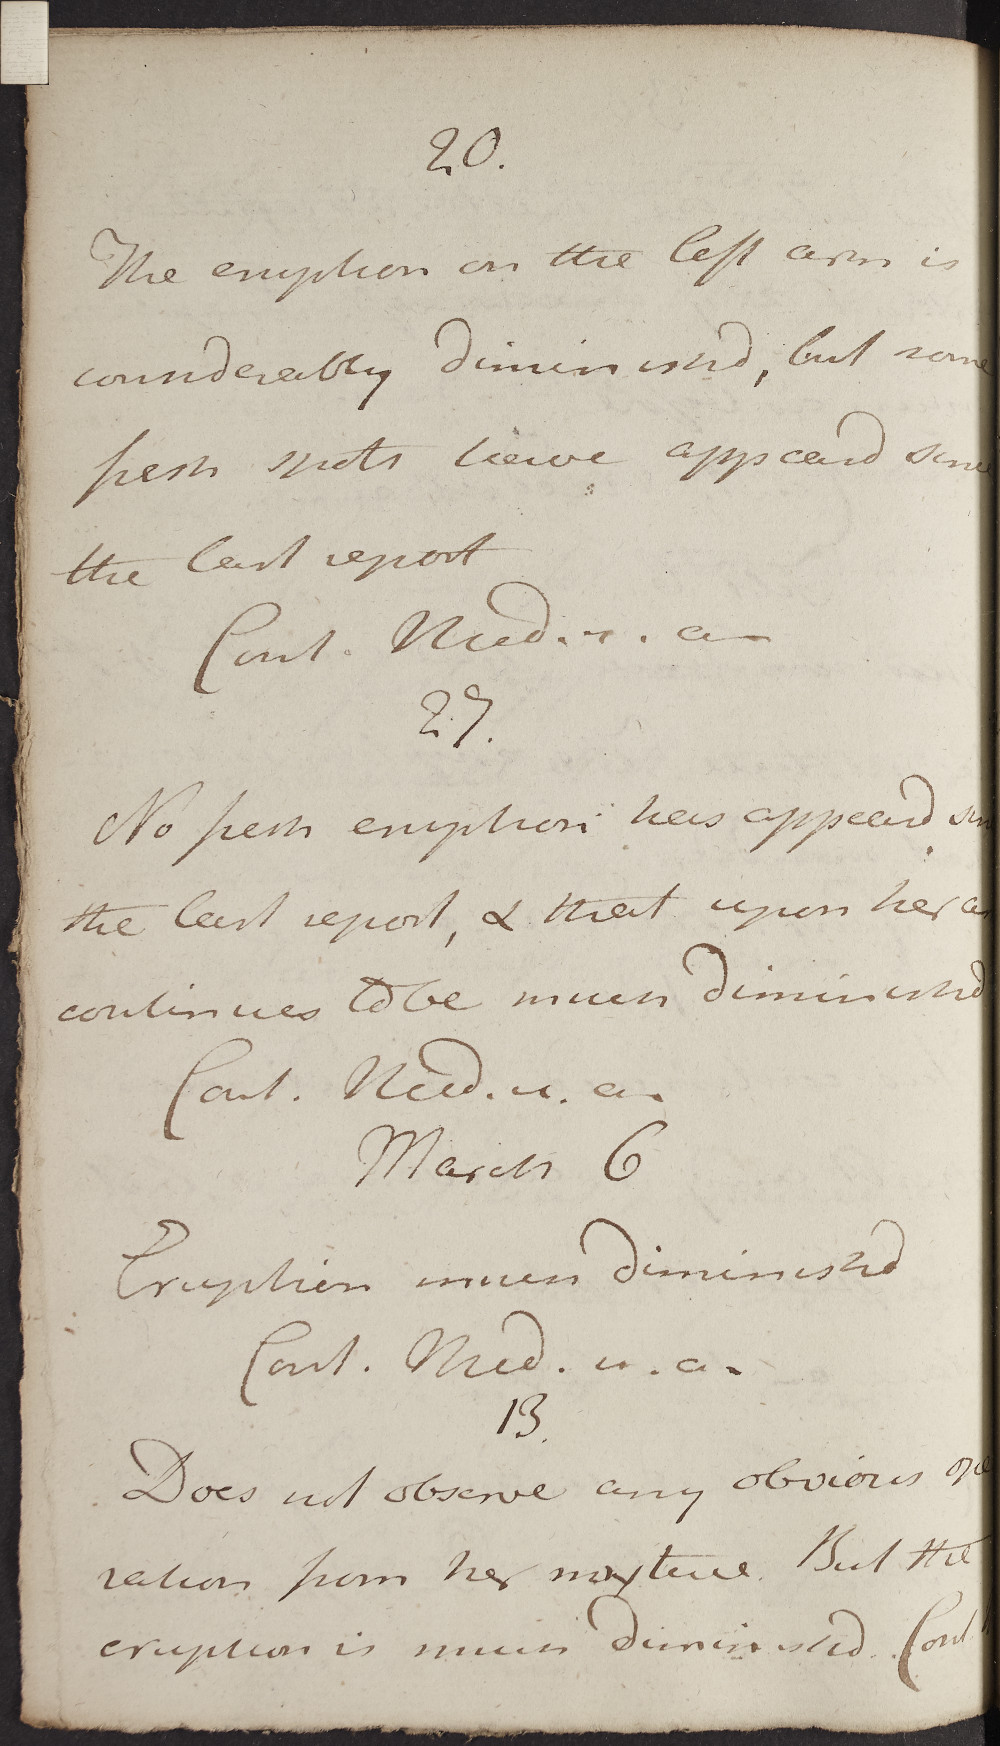 20.
The eruption on the left arm is
considerably diminishd, but some
fresh spots have appeard since
the last report
Cont. Med. u. a
27.
No fresh eruption has appeard sin
the last report, & that upon her a
continues to be much diminishd
Cont. Med. u. a.
March 6
Eruption much diminishd
Cont. Med. u. a.
13.
Does not observe any obvious ope
ration from her mixture. But the
eruption is much diminishd. Cont.